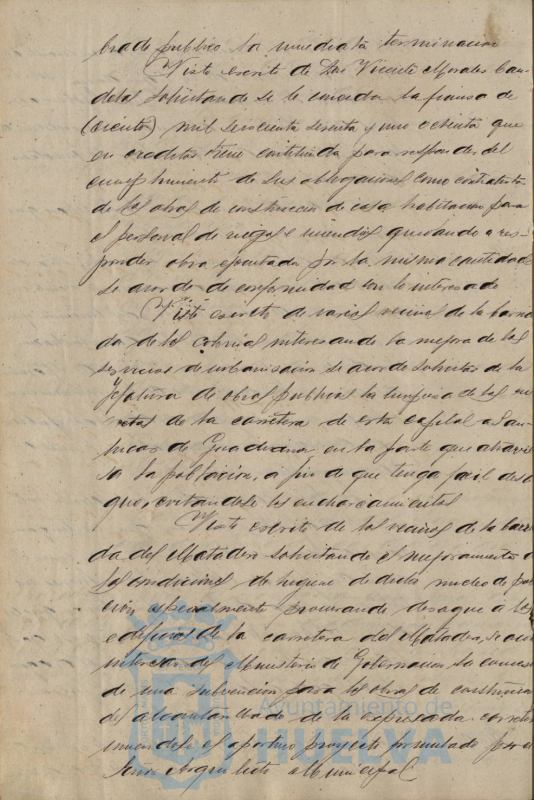 brado publico la inmediata terminacion
Visto escrito de Don Vicente Morales Can-
delas solicitando se le conceda la fianza de
(ciento) mil seiscienta sesenta y uno ochenta que
en creditos tiene constituida para responder del
cumplimiento de sus obligaciones como contratista
de las obras de construccion de casa habitacion para
el personal de riegos e incendios quedando a res-
ponder obra ejecutada por la misma cantidad
se acordo de conformidad con lo interesado
Visto escrito de varios vecinos de la barria
da de las Colonias interesando la mejora de los
servicios de urbanizacion se acordo solicitar de la
Jefatura de obras publicas la limpieza de las cu
netas de la carretera de esta capital a San
lucar de Guadiana, en la parte que atravie
sa la poblacion, a fin de que tenga facil desa
que, evitandose los encharcamientos
Visto escrito de los vecinos de la barria
da del Matadero solicitando el mejoramiento de
las condiciones de higiene de dicho nucleo de pobla
cion especialmente procurando desague a los
edificios de la carretera del Matadero, se acordo
interesar del Ministerio de Gobernacion la conces
de una subvencion para las obras de construccion
del alcantarillado de la expresada carretera
uniendose el oportuno proyecto formulado por el
Señor Arquitecto Municipal
Ayuntamiento de
HUELVA